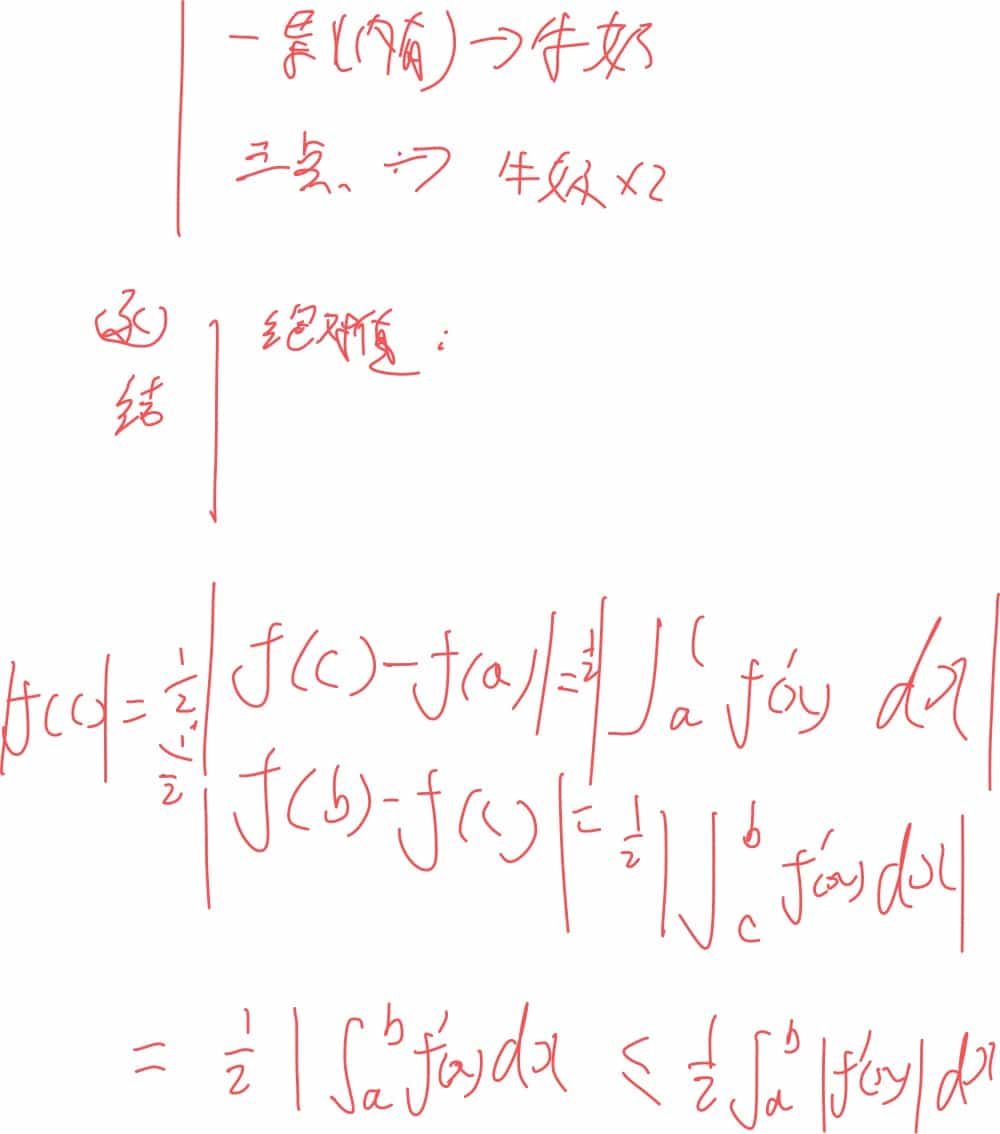 一导(内有)→牛奶
三点、⇒ 牛奶×2
绝对值:
结
|f(c)| = 1/2 |f(c)-f(a)| = 1/2 |∫_a^c f'(x) dx|
1/2 |f(b)-f(c)| = 1/2 |∫_c^b f'(x) dx|
= 1/2 |∫_a^b f'(x) dx ≤ 1/2 ∫_a^b |f'(x)| dx